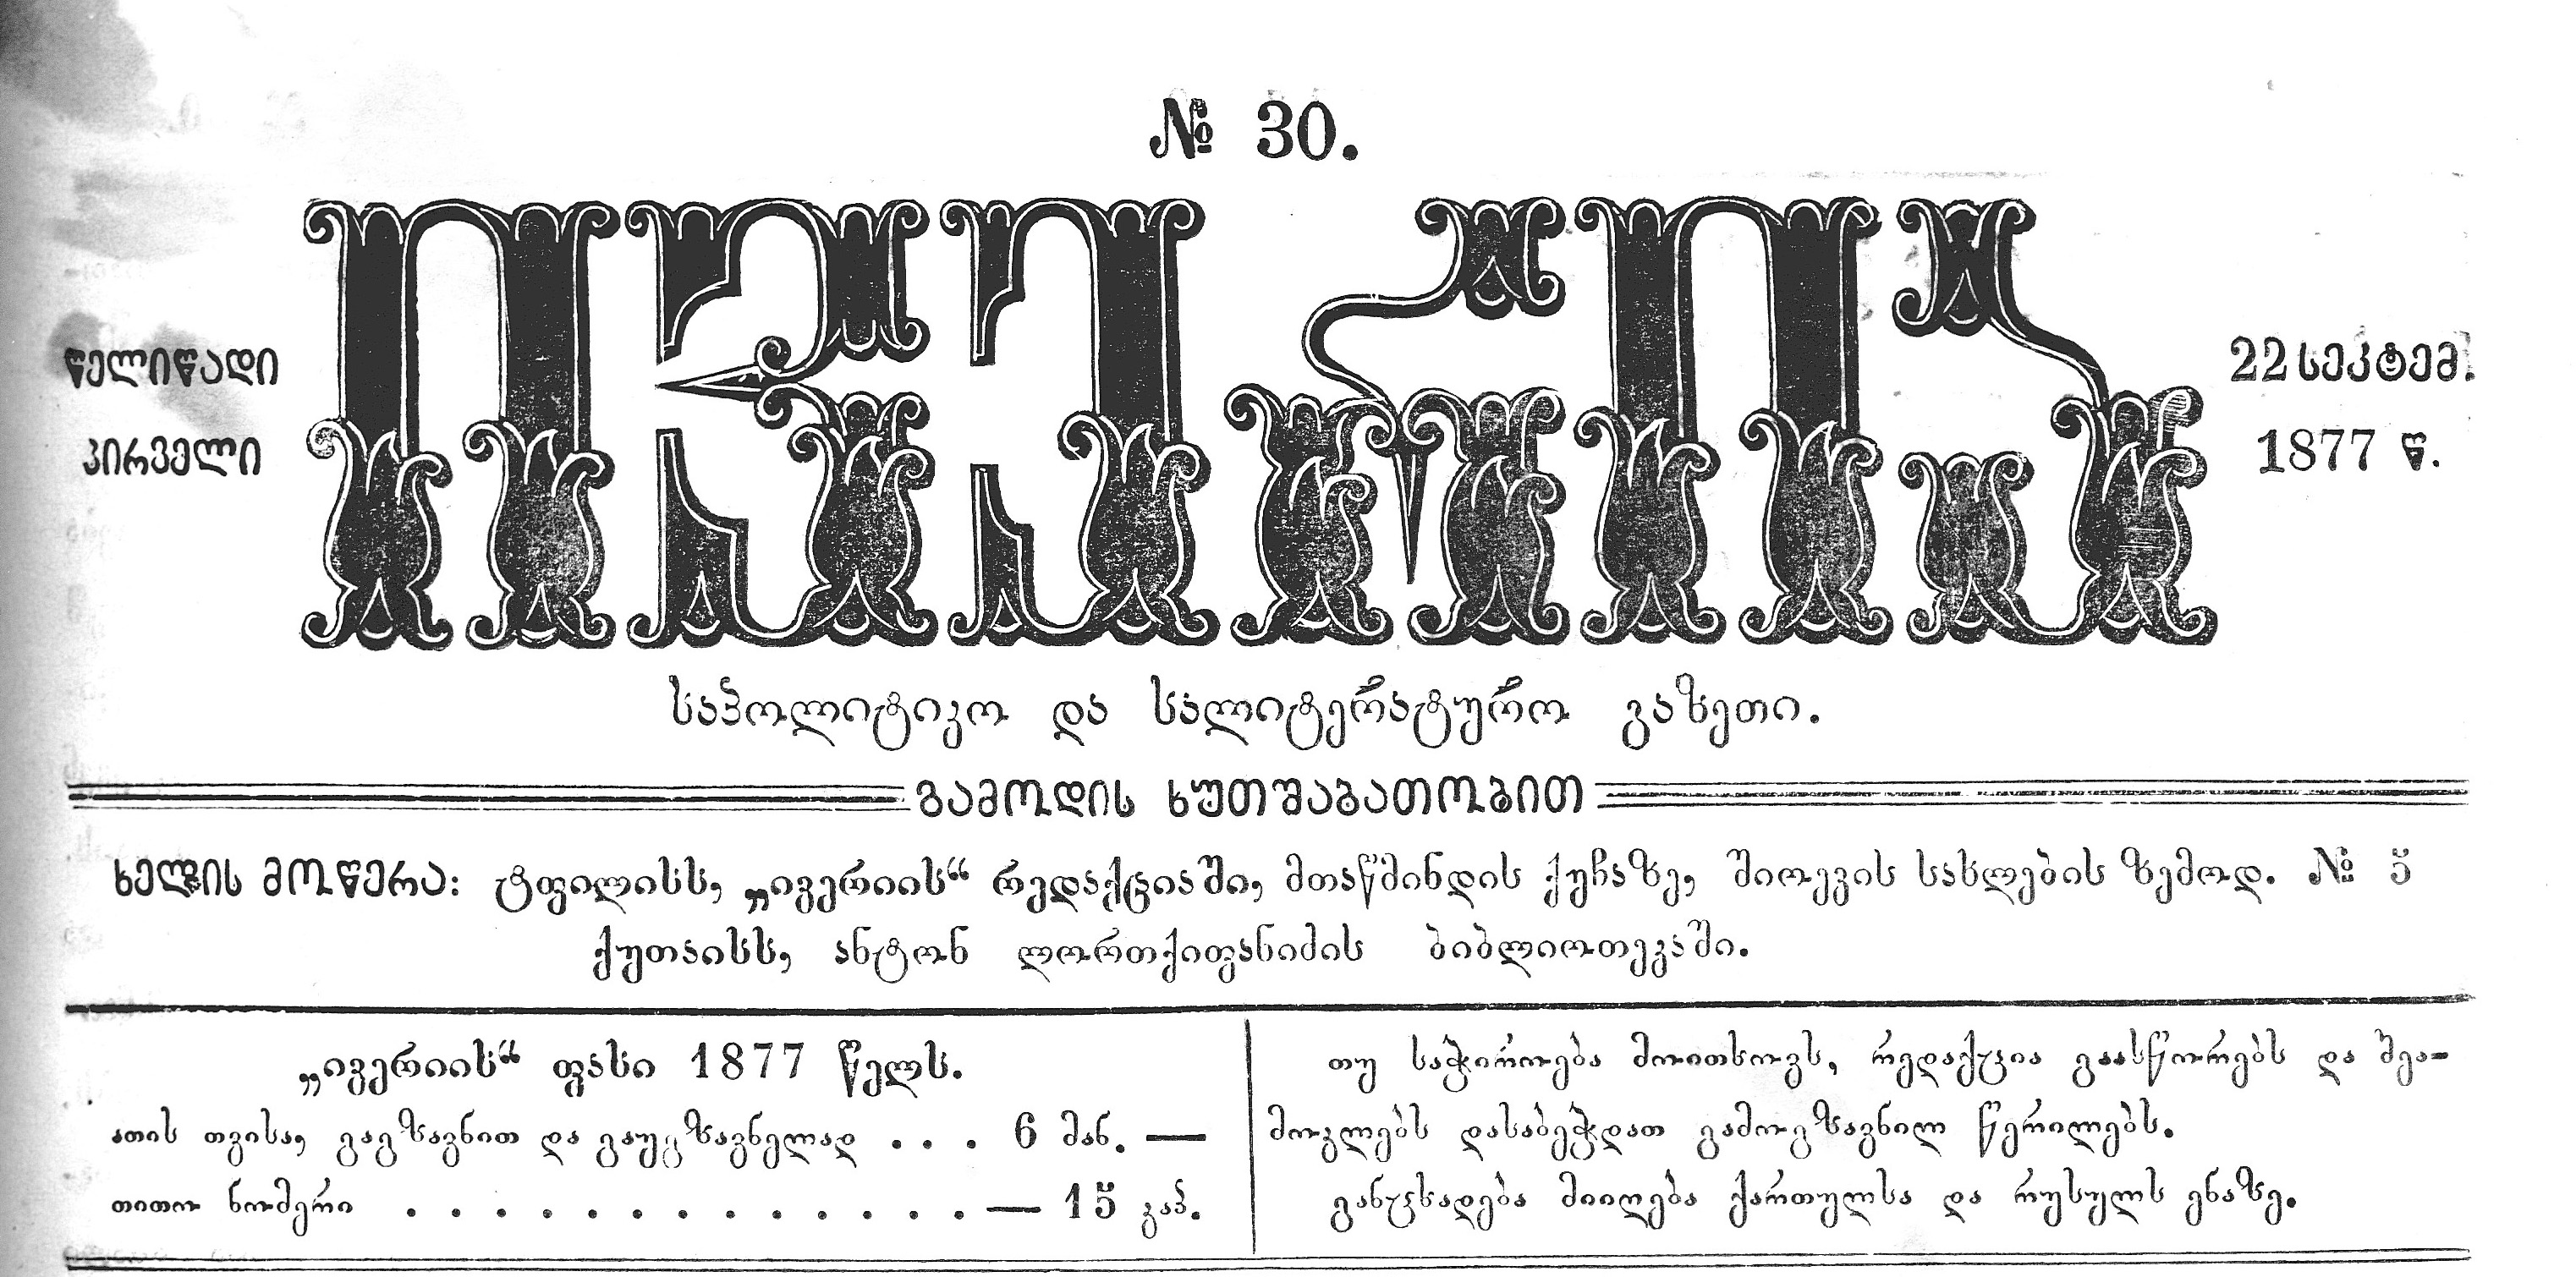 № 30.
ივერია
წელიწადი
პირველი
22 სეკტემ.
1877 წ.
საპოლიტიკო და სალიტერატურო გაზეთი.
გამოდის ხუთშაბათობით
ხელის მოწერა: ტფილისს, „ივერიის“ რედაქციაში, მთაწმინდის ქუჩაზე, შიოევის სახლების ზემოდ. № 5
ქუთაისს, ანტონ ლორთქიფანიძის ბიბლიოთეკაში.
„ივერიის“ ფასი 1877 წელს.
ათის თვისა, გაგზავნით და გაუგზავნელად . . . 6 მან. —
თითო ნომერი . . . . . . . . . . . . . — 15 კაპ.
თუ საჭიროება მოითხოვს, რედაქცია გაასწორებს და შეა-
მოკლებს დასაბეჭდათ გამოგზავნილ წერილებს.
განცხადება მიიღება ქართულსა და რუსულს ენაზე.